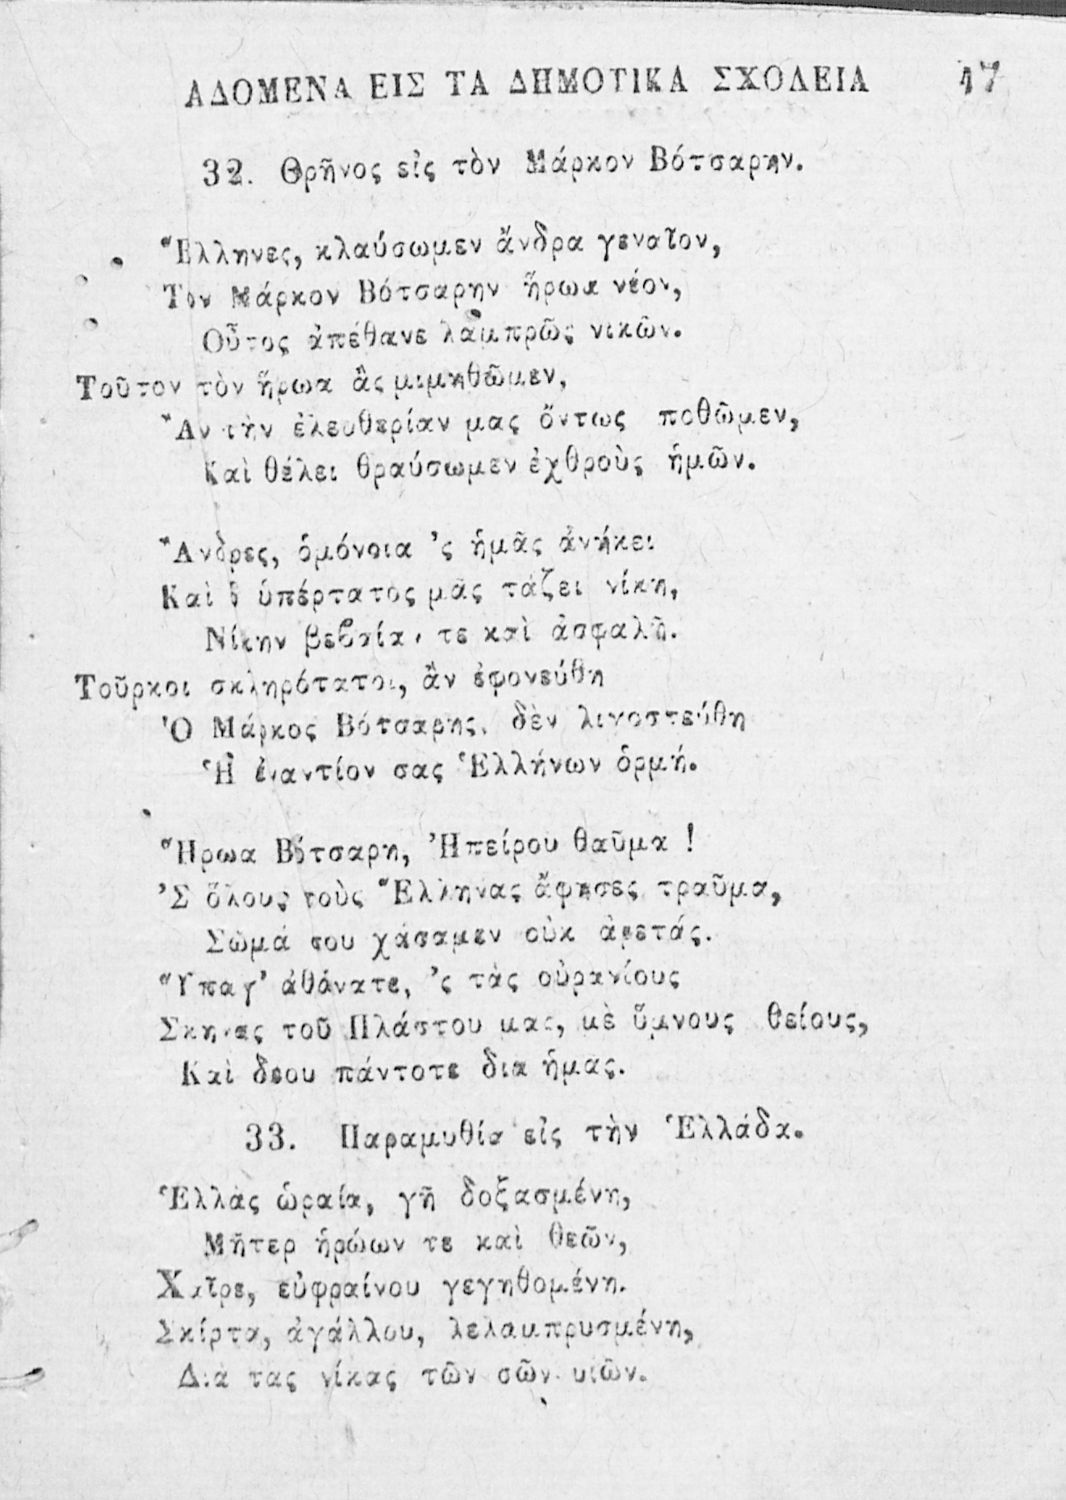 ΑΔΟΜΕΝΑ ΕΙΣ ΤΑ ΔΗΜΟΤΙΚΑ ΣΧΟΛΕΙΑ 47
32. Θρῆνος εἰς τὸν Μάρκον Βότσαρην.
Ἕλληνες, κλαύσωμεν ἄνδρα γεναῖον,
Τὸν Μάρκον Βότσαρην ἥρωα νέον,
Οὗτος ἀπέθανε λαμπρῶς νικῶν.
Τοῦτον τὸν ἥρωα ἂς μιμηθῶμεν,
Ἂν τὴν ἐλευθερίαν μας ὄντως ποθῶμεν,
Καὶ θέλει θραύσωμεν ἐχθροὺς ἡμῶν.
Ἄνδρες, ὁμόνοια 'ς ἡμᾶς ἀνήκει
Καὶ ὁ ὑπέρτατος μᾶς τάζει νίκη,
Νίκην βεβαίαν τε καὶ ἀσφαλῆ.
Τοῦρκοι σκληρότατοι, ἂν ἐφονεύθη
Ὁ Μάρκος Βότσαρης, δὲν λιγοστεύθη
Ἡ ἐναντίον σας Ἑλλήνων ὁρμή.
Ἥρωα Βότσαρη, Ἠπείρου θαῦμα !
'Σ ὅλους τοὺς Ἕλληνας ἄφησες τραῦμα,
Σῶμά σου χάσαμεν οὐκ ἀρετάς.
Ὕπαγ' ἀθάνατε, 'ς τὰς οὐρανίους
Σκηνὰς τοῦ Πλάστου μας, μὲ ὕμνους θείους,
Καὶ δέου πάντοτε δια ἡμας.
33. Παραμυθία εἰς τὴν Ἑλλάδα.
Ἑλλὰς ὡραία, γῆ δοξασμένη,
Μῆτερ ἡρώων τε καὶ θεῶν,
Χαῖρε, εὐφραίνου γεγηθομένη.
Σκίρτα, ἀγάλλου, λελαμπρυσμένη,
Διὰ τας νίκας τῶν σῶν υἱῶν.